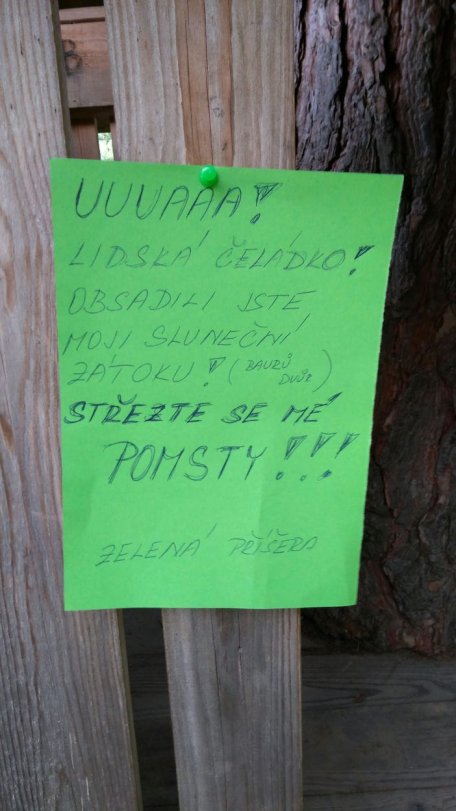 UUUAAA!
LIDSKÁ ČELÁDKO!
OBSADILI JSTE
MOJI SLUNEČNÍ
ZÁTOKU! (BAURŮ
DVŮR)
STŘEZTE SE MÉ
POMSTY!!!
ZELENÁ PŘÍŠERA